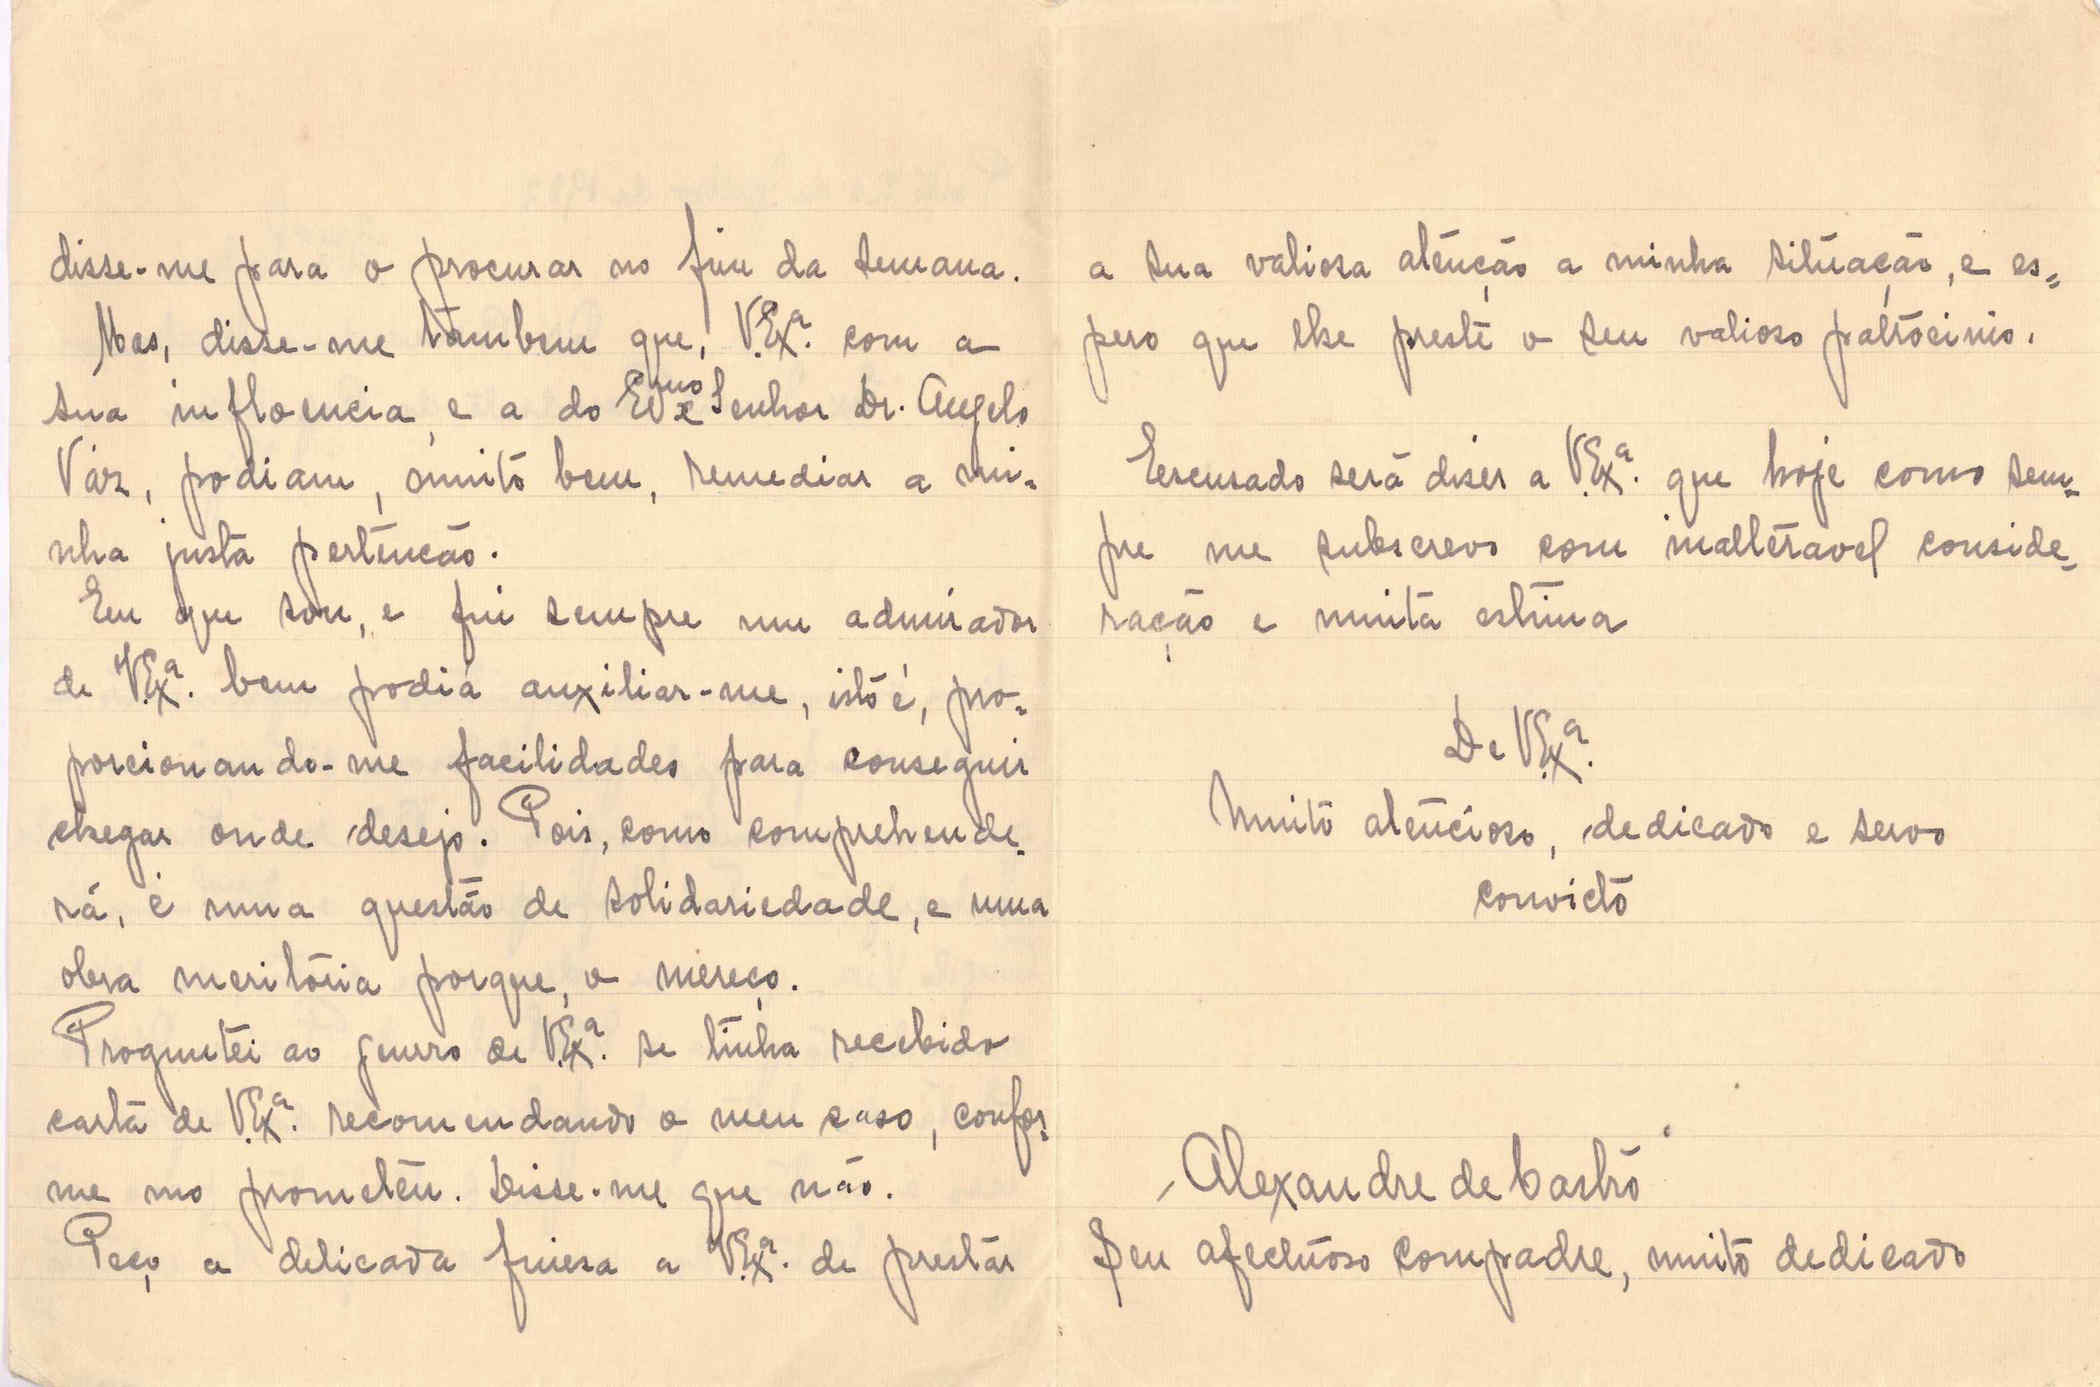 disse-me para o procurar no fim da semana.
Mas, disse-me tambem que, V.Exª. com a
sua influencia, e a do Exmo Senhor Dr. Angelo
Váz, podiam, muito bem, remediar a mi-
nha justa pertenção.
Eu que sou, e fui sempre um admirador
de V.Exª. bem podia auxiliar-me, isto é, pro-
porcionando-me facilidades para conseguir
chegar onde desejo. Pois, como comprehende-
rá, é uma questão de solidariedade, e uma
obra meritória porque, o mereço.
Proguntei ao genro de V.Exª. se tinha recebido
carta de V.Exª. recomendando o meu caso, confor-
me mo prometeu. Disse-me que não.
Peço a delicada finesa a V.Exª. de prestar
a sua valiosa atenção a minha situação, e es-
pero que lhe preste o seu valioso patrocinio.
Escusado será diser a V.Exª. que hoje como sem-
pre me subscrevo com inalteravel conside-
ração e muita estima
De V.Exª.
Muito atencioso, dedicado e servo
convicto
Alexandre de Castro
Seu afectuoso compadre, muito dedicado